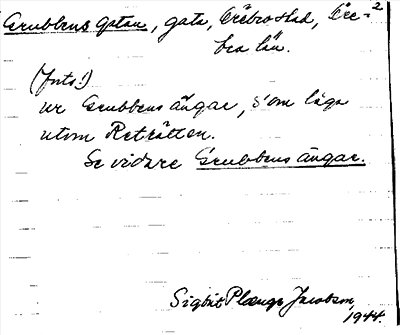 Grubbens gatan, gata, Örebro stad, Öre- 2
bro län.
(forts.)
ur Grubbens ängar, som låga
utom Reträtten.
Se vidare Grubbens ängar.
Sigbrit Plænge Jacobson,
1944.